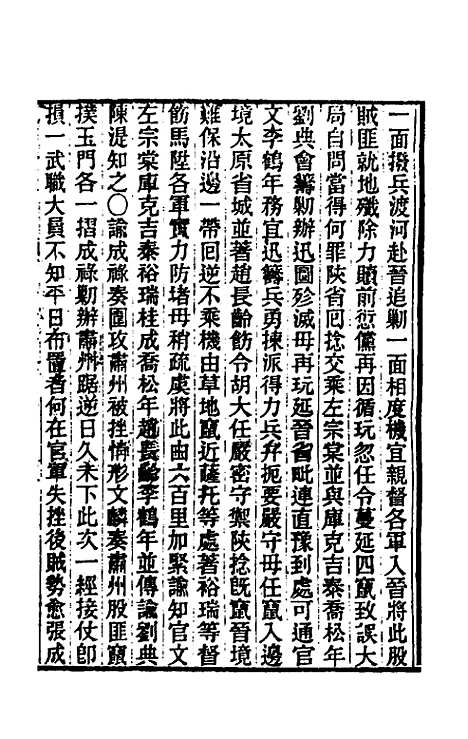 一面撥兵渡河赴晉追勦一面相度機宜親督各軍入晉將此股
賊匪就地殲除力贖前愆儻再因循玩忽任令蔓延四竄致誤大
局自問當得何罪陝省回捻交乘左宗棠並與庫克吉泰喬松年
劉典會籌勦辦迅圖殄滅毋再玩延晉省毗連直豫到處可通官
文李鶴年務宜迅籌兵勇揀派得力兵弁扼要嚴守毋任竄入邊
境太原省城並著趙長齡飭令胡大任嚴密守禦陝捻旣竄晉境
難保沿邊一帶回逆不乘機由草地竄近薩托等處著裕瑞等督
飭馬陞各軍實力防堵毋稍疏虞將此由六百里加緊諭知官文
左宗棠庫克吉泰裕瑞桂成喬松年趙長齡李鶴年並傳諭劉典
陳湜知之○諭成祿奏圍攻肅州被挫情形文麟奏肅州股匪竄
撲玉門各一摺成祿勦辦肅州踞逆日久未下此次一經接仗卽
損一武職大員不知平日布置者何在官軍失挫後賊勢愈張成